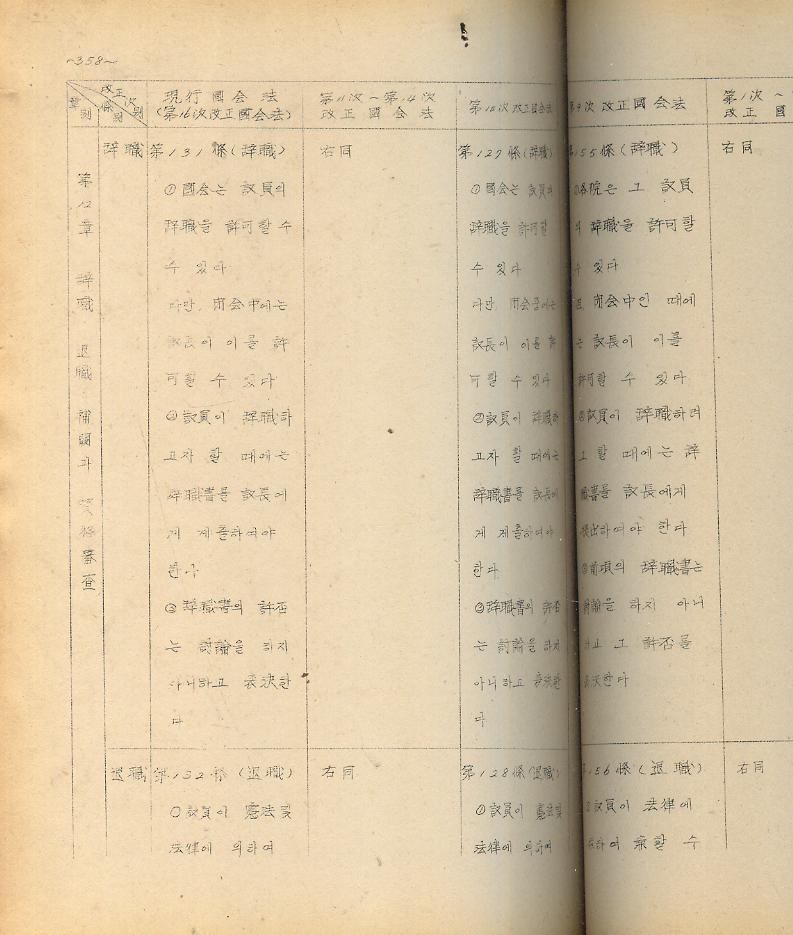 ~358~
改正次別
條別
章別
現行國会法
(第16次改正國会法)
第11次~第14次
改正國会法
第15次改正國会法
第9次改正國会法
第1次~
改正國
第12章 辞職 退職 補闕과 資格審査
辞職
第131條(辞職)
① 國会는 議員의
辞職을 許可할 수
수 있다
다만, 閉会中에는
議長이 이를 許
可할 수 있다
② 議員이 辞職하
고자 할 때에는
辞職書를 議長에
게 제출하여야
한다
③ 辞職書의 許否
는 討論을 하지
아니하고 表決한
다
右同
第127條(辞職)
① 國会는 議員의
辞職을 許可할
수 있다
다만, 閉会중에는
議長이 이를 許
可할 수 있다
② 議員이 辞職하
고자 할 때에는
辞職書를 議長에
게 제출하여야
한다
③ 辞職書의 許否
는 討論을 하지
아니하고 表決한
다
55條(辞職)
各院은 그 議員
의 辞職을 許可할
수 있다
閉会中인 때에
는 議長이 이를
許可할 수 있다
議員이 辞職하려
그 할 때에는 辞
職書를 議長에게
提出하여야 한다
前項의 辞職書는
討論을 하지 아니
하고 그 許否를
表決한다
右同
退職
第132條(退職)
① 議員이 憲法및
法律에 의하여
右同
第128條(退職)
① 議員이 憲法및
法律에 의하여
56條(退職)
議員이 法律에
하여 兼할 수
右同